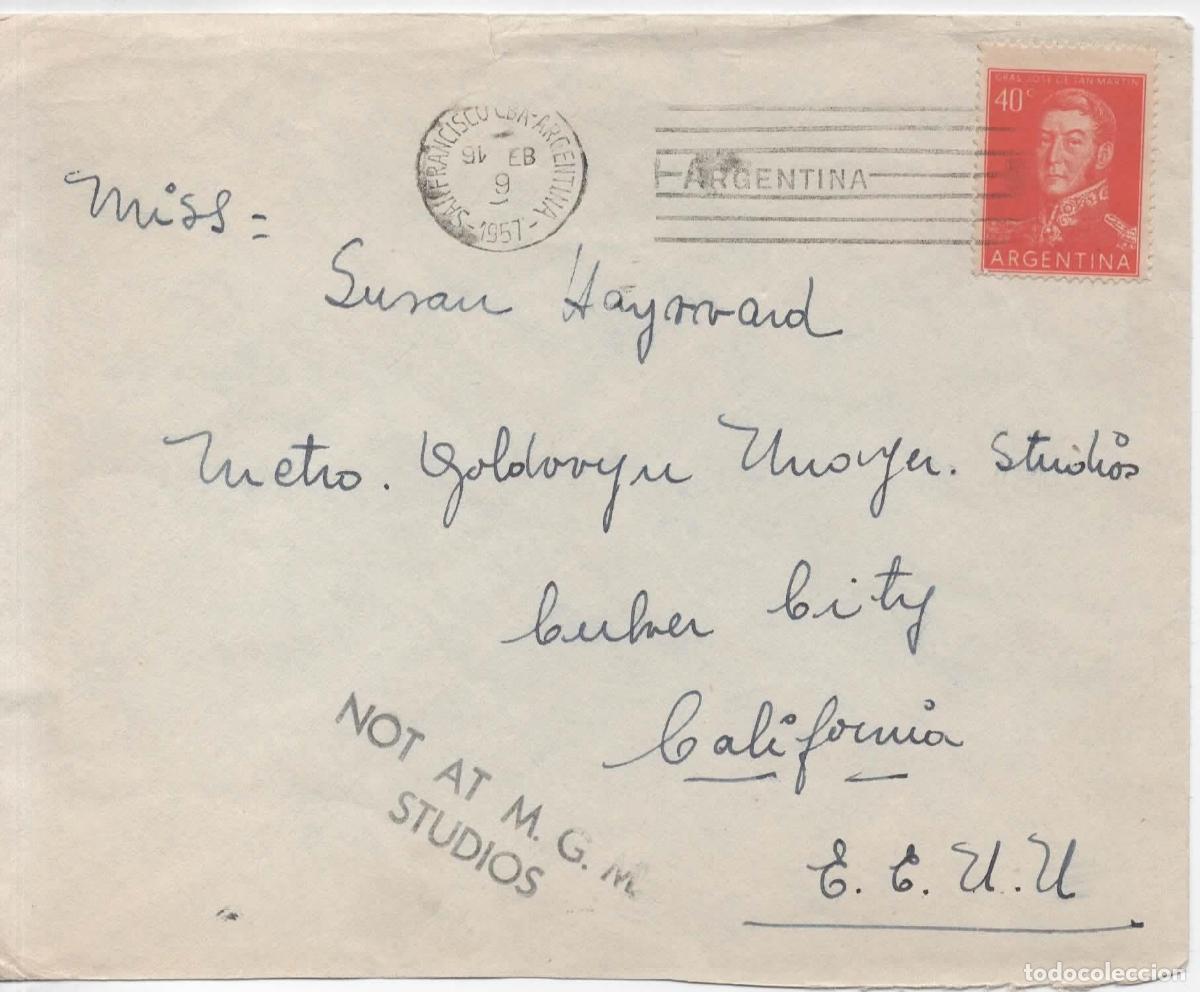 GRAL. JOSE DE SAN MARTIN
40c
ARGENTINA
SAN FRANCISCO CBA-ARGENTINA
1957
ARGENTINA
Miss =
Susan Hayward
Metro. Goldowyn Mayer. Studios
Culver City
California
E. E. U. U
NOT AT M. G. M.
STUDIOS
todocoleccion